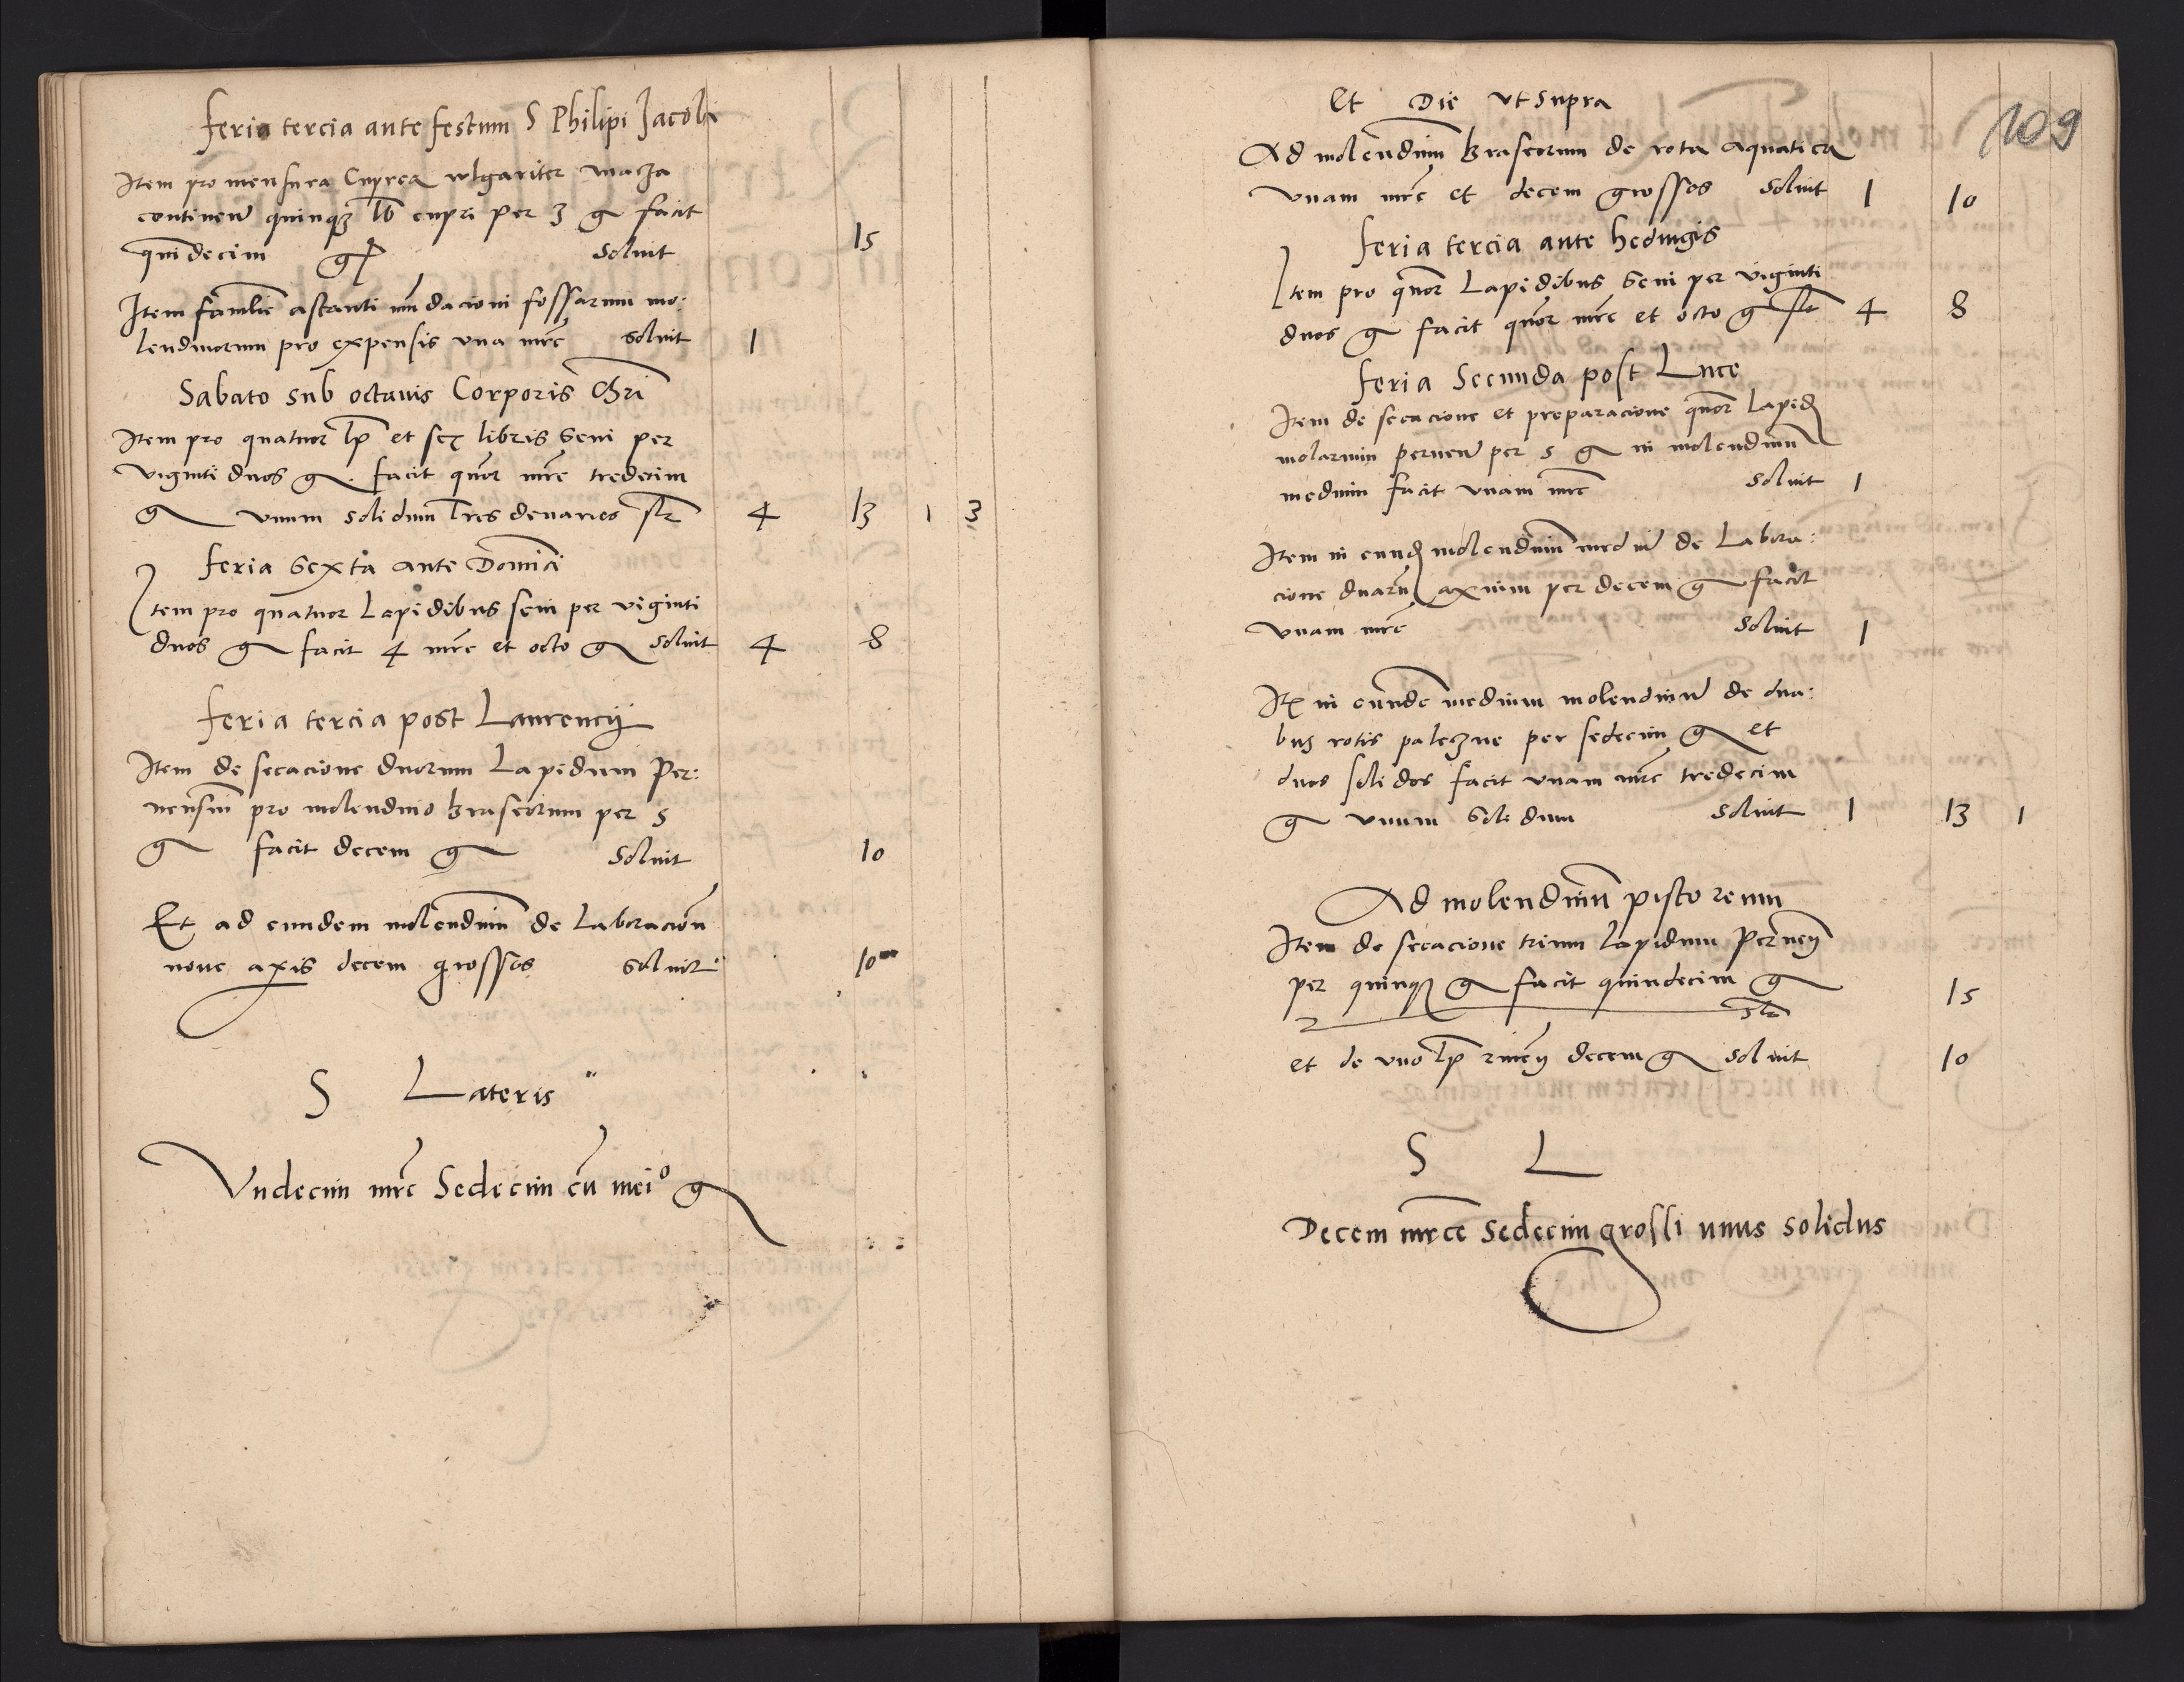 feria tercia ante festum S Philipi Jacobi
Item pro mensura Cuprea wlgariter miacza
continen quinqz lb cupri per 3 g facit
quindecim g soluit 15
Item familie astanti mundacioni fossarum mo:
lendinorum pro expensis una mrc soluit 1
Sabato sub octauis Corporis Chri
Item pro quatuor lp et sex libris seui per
viginti duos g facit quor mrc tredecim
g vnum solidum tres denarios slt 4 13 1 3
feria Sexta ante Domici
Item pro quatuor Lapidibus seui per viginti
duos g facit 4 mrc et octo g soluit 4 8
feria tercia post Laurencij
Item de secacione duorum Lapidum Per:
nensiu pro molendino braseorum per 5
g facit decem g Soluit 10
Et ad eundem molendinu de Laboracion
noue axis decem grossos soluit 10
S Lateris
Vndecim mrc Sedecim cu meio g
109
Et Die vt supra
Ad molendinum braseorum de rota aquatica
vnam mrc et decem grossos soluit 1 10
feria tercia ante hedwigis
Item pro quor Lapidibus seui per viginti
duos g facit quor mrc et octo g slt 4 8
feria Secunda post Luce
Item de secacione et preparacione quor Laped
molarium pernen per 5 g in molendinu
medium facit vnam mrc soluit 1
Item in eund molendinum mediu de Labora:
cione duaru axium per decem g facit
vnam mrc soluit 1
It in eunde medium molendinu de dua:
bus rotis paleczne per sedecim g et
duos solidos facit vnam mrc tredecim
g vnum Solidum soluit 1 13 1
Ad molendinu pistorum
Item de secacione trium Lapidum Pernen
per quinqz g facit quindecim g 15
slt
et de vno lp decem g soluit 10
S L
Decem mrce Sedecim grossi unus solidus